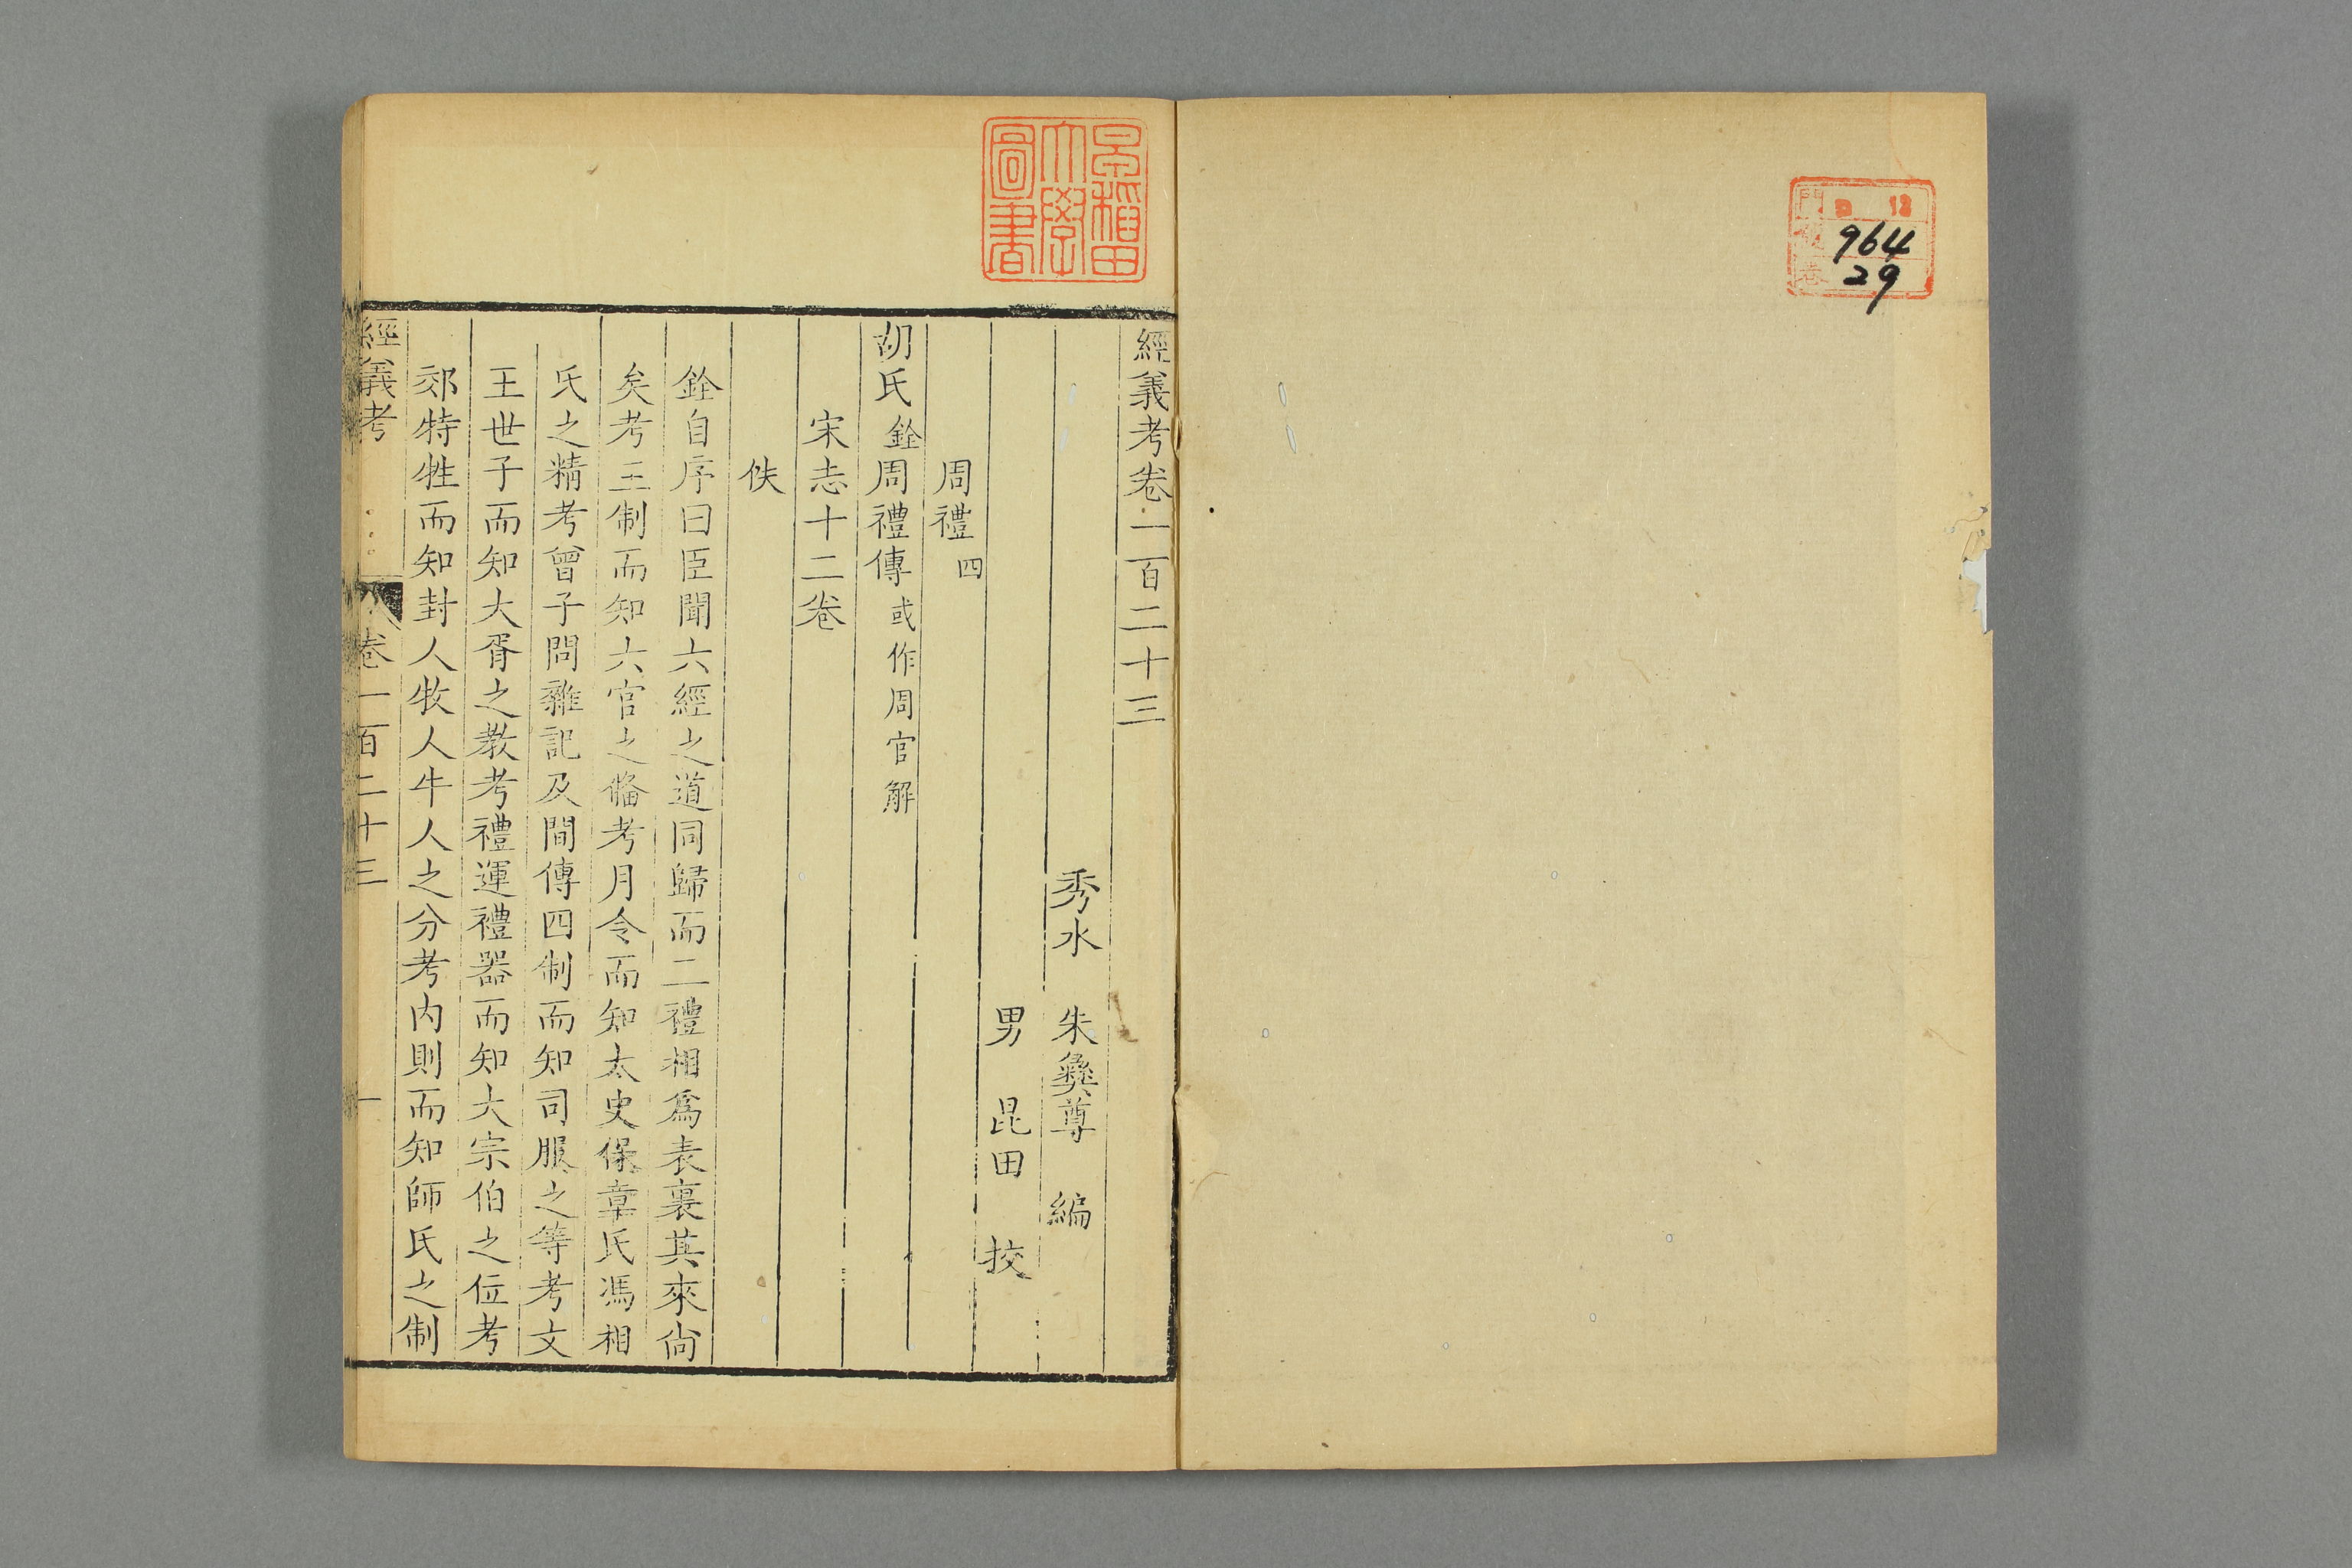 門 ロ 12
號 964
卷 29
早稻田
大學
圖書
經義考卷一百二十三
秀水 朱彝尊 編
男 昆田 挍
周禮四
胡氏銓周禮傳或作周官解
宋志十二卷
佚
銓自序曰臣聞六經之道同歸而二禮相爲表裏其來尙
矣考王制而知六官之僃考月令而知太史保章氏馮相
氏之精考曾子問雜記及間傳四制而知司服之等考文
王世子而知大胥之教考禮運禮器而知大宗伯之位考
郊特牲而知封人牧人牛人之分考內則而知師氏之制
經義考 卷一百二十三 一